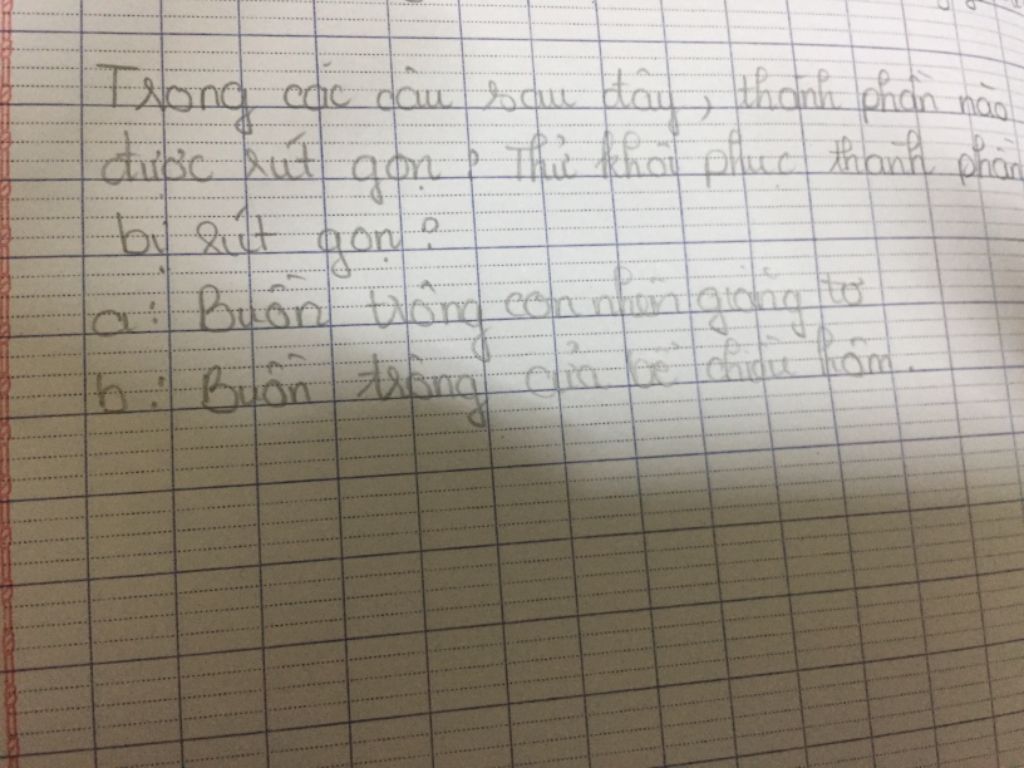 Trong các câu sau đây, thành phần nào
được rút gọn? Thử khôi phục thành phần
bị rút gọn?
a: Buồn trông con nhện giăng tơ
b: Buồn trông cửa bể chiều hôm.